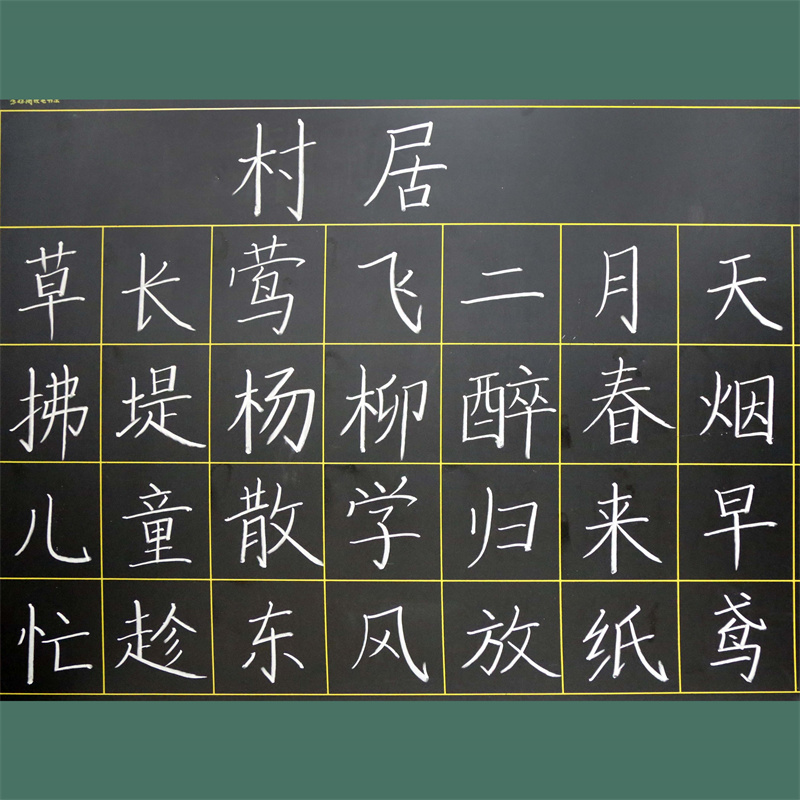 村居
草长莺飞二月天
拂堤杨柳醉春烟
儿童散学归来早
忙趁东风放纸鸢